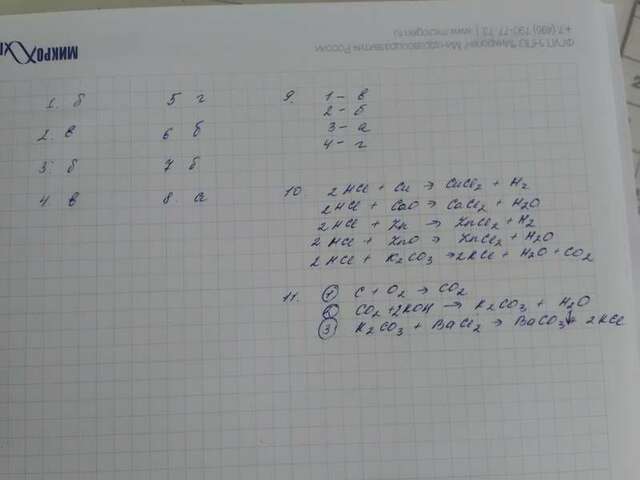 МИКРО
ФГУП "НПО "Микроген" Минздравсоцразвития России
+7 (495) 790-77-73 | www.microgen.ru
1. б
2. в
3. б
4 в
5 г
6 б
7 б
8. а
9. 1 – в
2 – б
3 – а
4 – г
10 2HCl + Cu → CuCl2 + H2
2HCl + CaO → CaCl2 + H2O
2HCl + Zn → ZnCl2 + H2
2HCl + ZnO → ZnCl2 + H2O
2HCl + K2CO3 → 2KCl + H2O + CO2
11. ① C + O2 → CO2
② CO2 + 2KOH → K2CO3 + H2O
③ K2CO3 + BaCl2 → BaCO3↓ + 2KCl